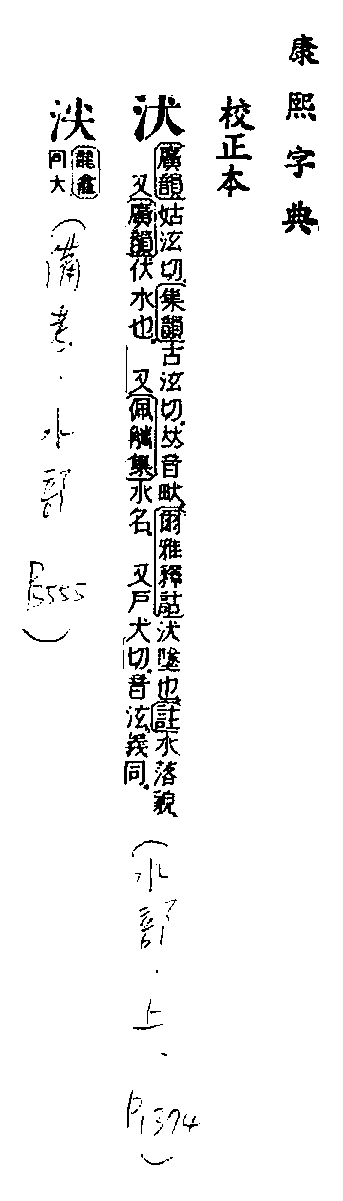 康熙字典
校正本
汱
廣韻姑泫切集韻古泫切𠀤音畎爾雅釋詁汱墜也註水落貌
又廣韻伏水也又佩觿集水名又戶犬切音泫義同
(水部.上、P1374)
龍龕
同大
(備考.水部 P1555)